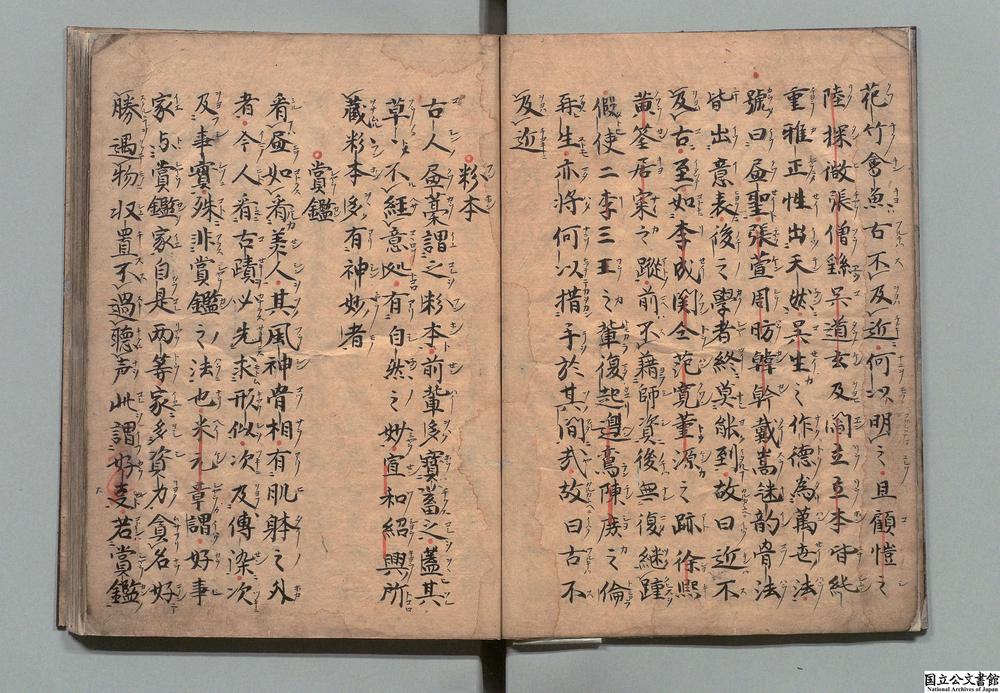 花竹禽魚古不及近何以明之且顧愷之
陸探微張僧繇吴道玄及閻立立本皆純
重雅正性出天然吴生之作德為萬世法
號曰畫聖張萱周昉韓幹戴嵩氣韵骨法
皆出意表後之學者終莫能到故曰近不
及古至如李成関仝范寛董源之跡徐熙
黄筌居寀之蹤前不藉師資後無復継踵
假使二李三王之輩復起邉鸞陳庶之倫
再生亦将何以措手於其間哉故曰古不
及近
粉本
古人畫藁謂之粉本前輩多寳蓄之蓋其
草々不經意処有自然之妙宣和紹興所
藏粉本多有神妙者
賞鑑
看畫如看美人其風神骨相有肌躰之外
者今人看古蹟必先求形似次及傳染次
及事實殊非賞鑑之法也米元章謂好事
家与賞鑑家自是两等家多資力貪名好
勝遇物収置不過聴声此謂好事若賞鑑
国立公文書館
National Archives of Japan